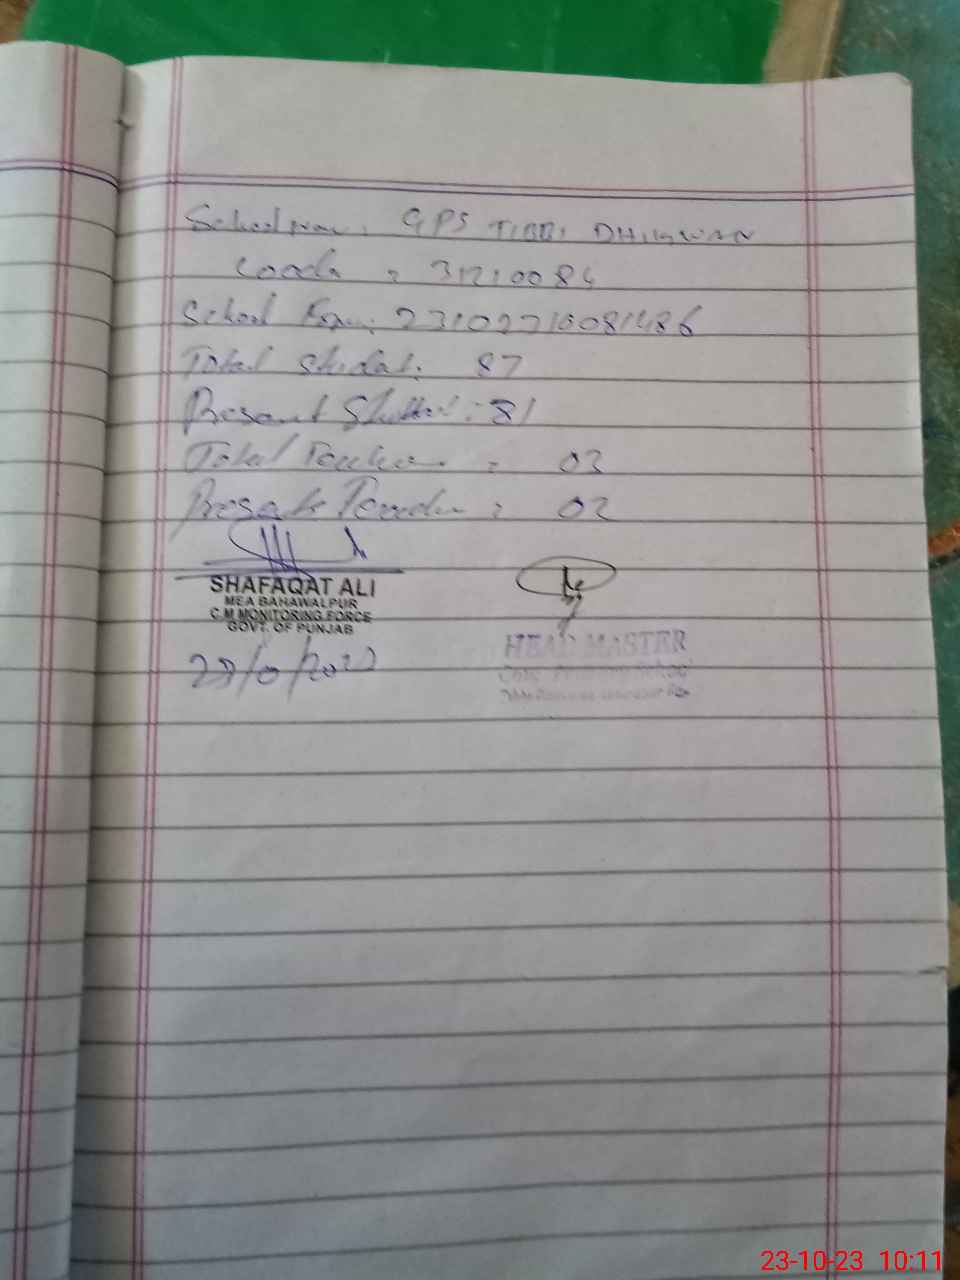 School Name: GPS TIBBI DHIKWAN
Coode : 31210084
School
Total Student: 87
Present Student: 81
Total Teacher : 02
Present Teacher : 02
SHAFAQAT ALI
MEA BAHAWALPUR
C.M MONITORING FORCE
GOVT. OF PUNJAB
HEAD MASTER
Primary School
23-10-23 10:11